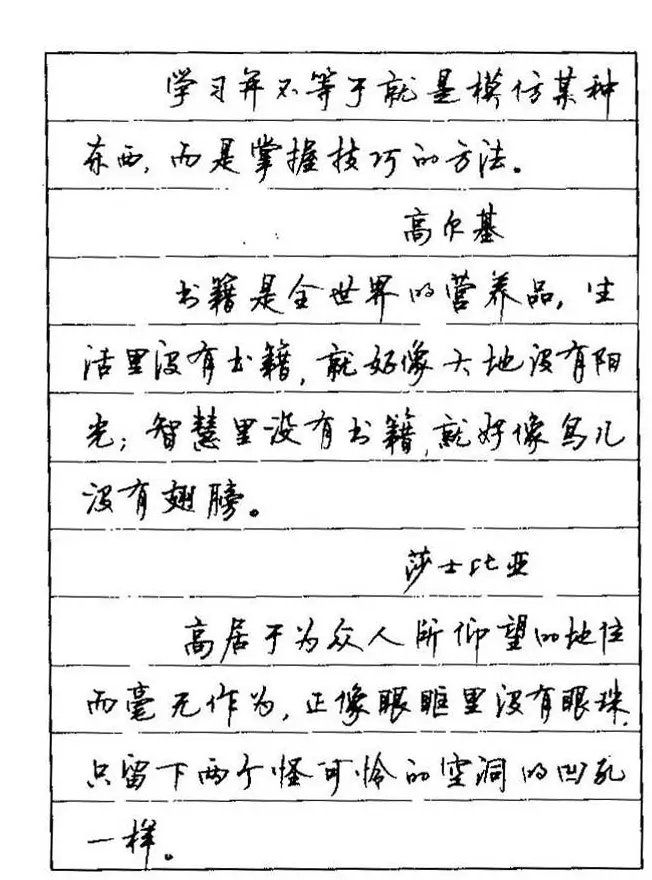 学习并不等于就是模仿某种
东西,而是掌握技巧的方法。
高尔基
书籍是全世界的营养品,生
活里没有书籍,就好像大地没有阳
光;智慧里没有书籍,就好像鸟儿
没有翅膀。
莎士比亚
高居于为众人所仰望的地位
而毫无作为,正像眼眶里没有眼珠,
只留下两个怪可怜的空洞的凹孔
一样。